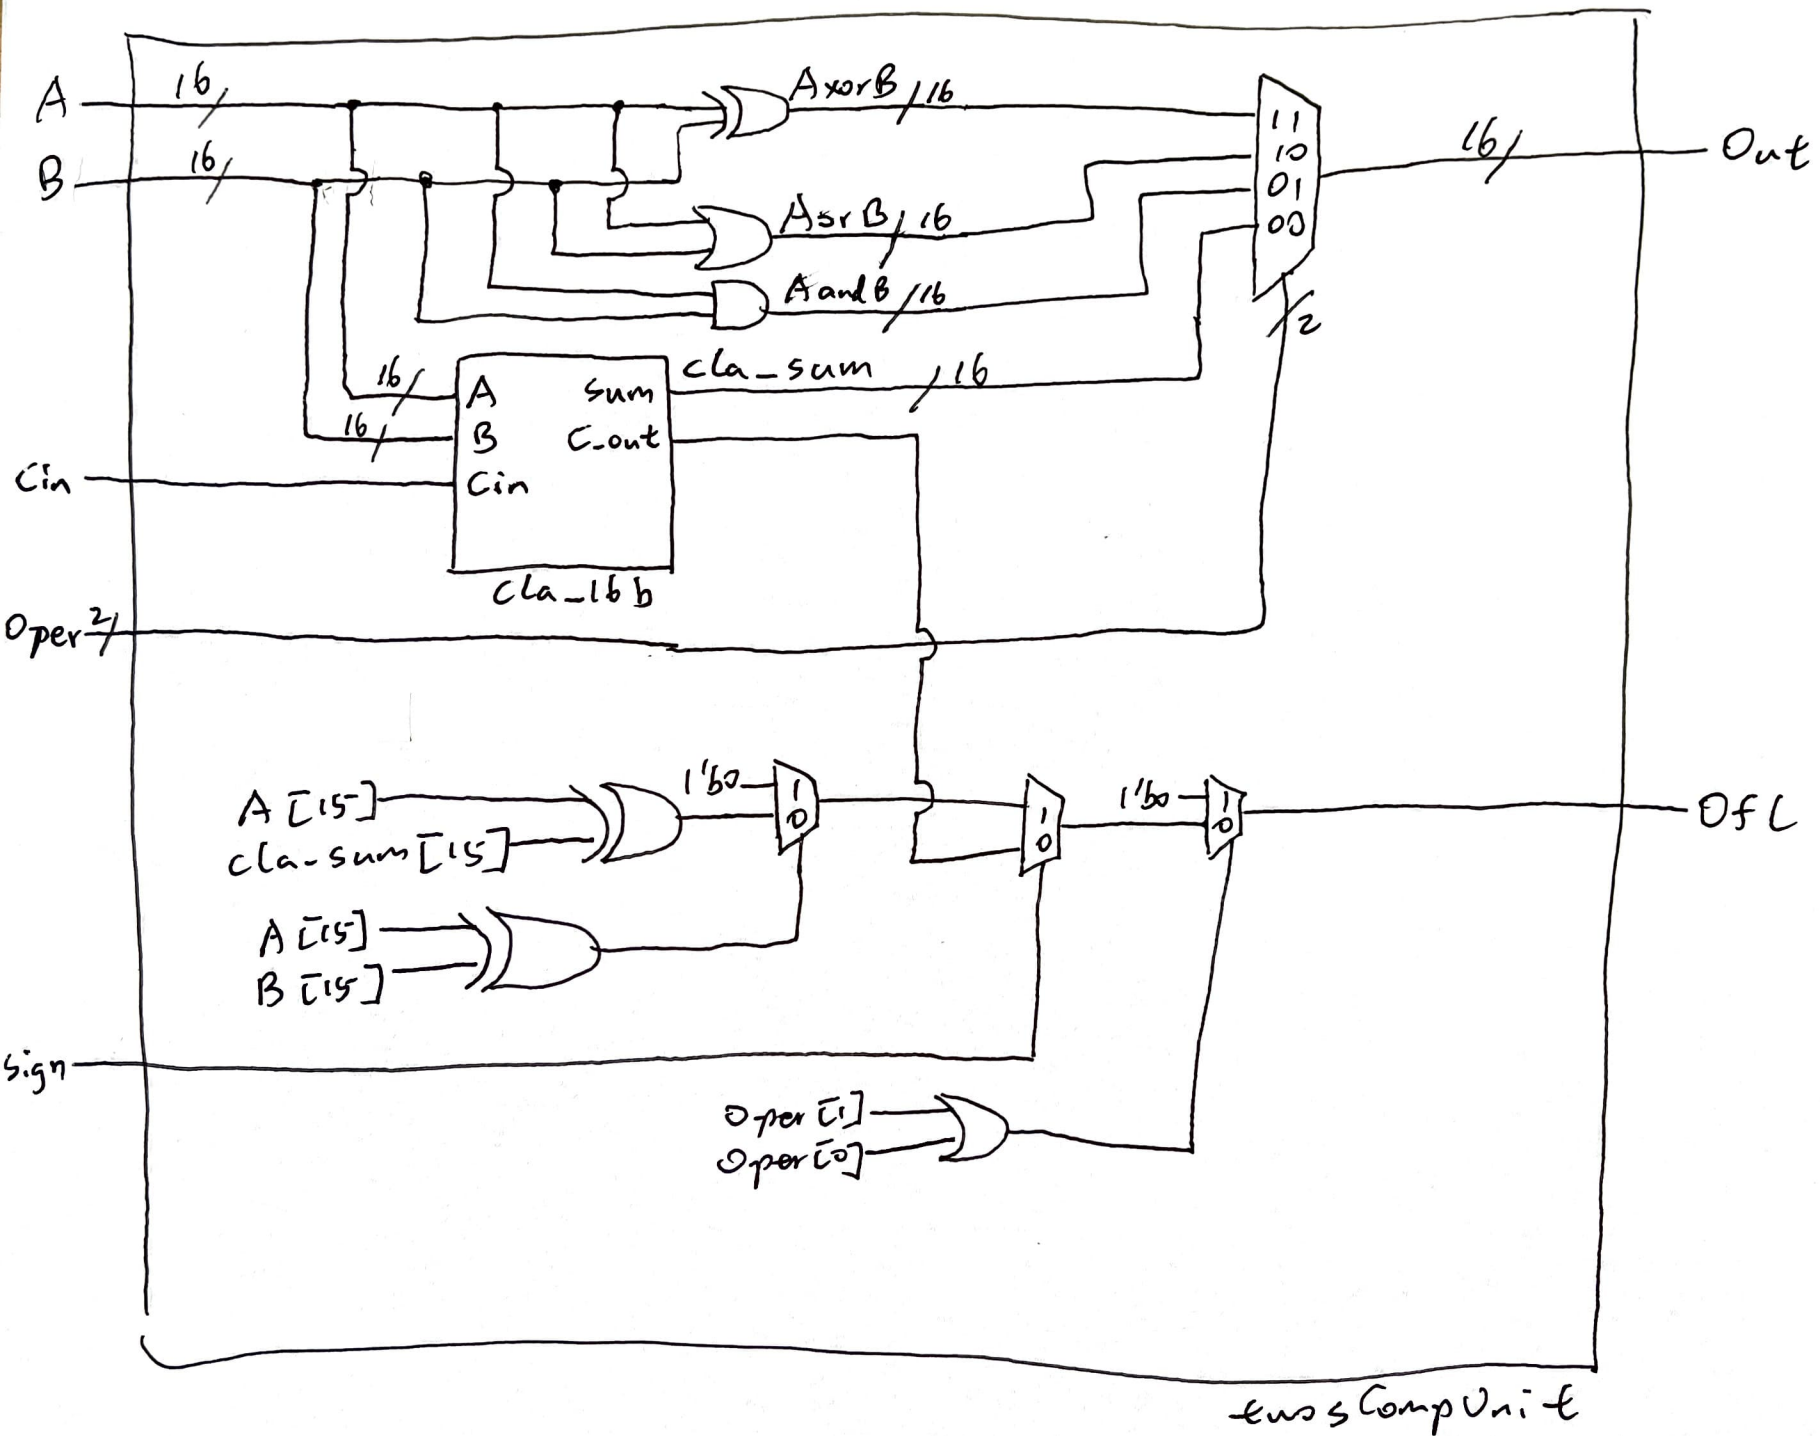 A 16
B 16
AxorB 16
AorB 16
AandB 16
11
10
01
00
16 Out
2
16 A
16 B
Cin Cin
sum
C_out
cla_sum 16
cla_16b
Oper 2
A[15]
cla_sum[15]
1'b0
1
0
A[15]
B[15]
1
0
1'b0
1
0
Ofl
sign
Oper[1]
Oper[0]
twosCompUnit